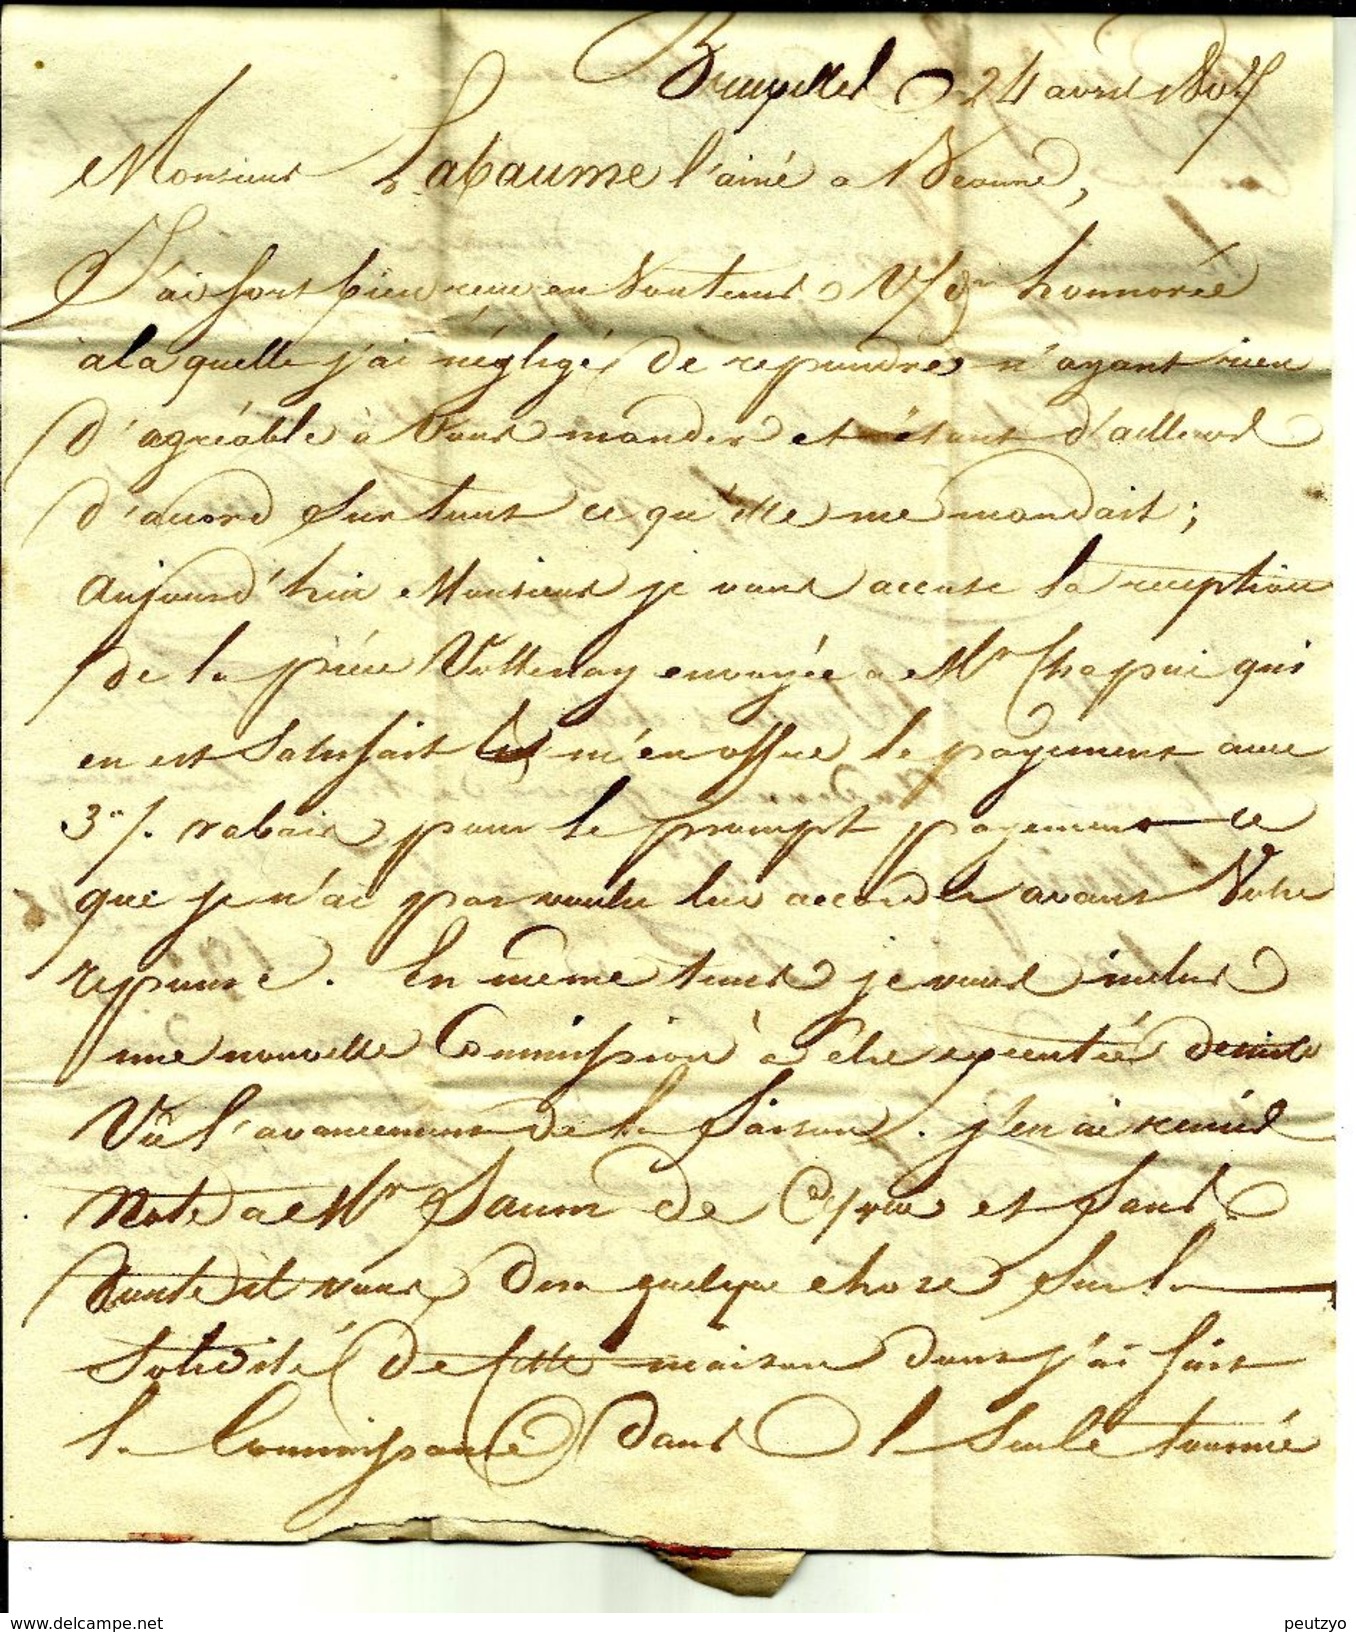 Bruxelles 24 avril
Monsieur Labaume l'ainé a Beaune,
J'ai fort bien reçu en son tems V/ honnorée
a la quelle j'ai négligé de repondre n'ayant rien
d'agréable à vous mander et étant d'ailleurs
d'accord sur tout ce qu'elle me mandait;
aujourd'hui Monsieur je vous accuse la reception
de la pièce Vollenay envoyée a Mr Chapuis qui
en est satisfait et m'en offre le payement avec
3 % rabais pour le prompt payement ce
que je n'ai pas voulu lui accorder avant Votre
reponse. En meme tems je vous inclus
une nouvelle Commission à être executée de suite
Vu l'avancement de la saison. j'en ai remis
Note a Mr Jaum de et sans
doute il vous dira quelque chose sur la
solidité de cette maison dont j'ai fait
la Connoissance dans la seule tournée
www.delcampe.net
peutzyo